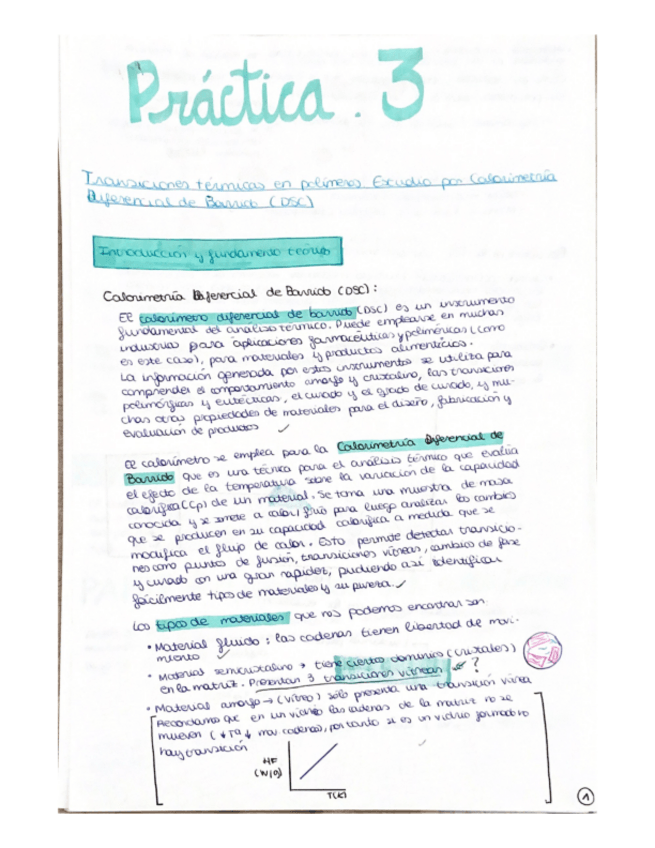 Práctica. 3
Transiciones térmicas en polímeros Estudio por Calorimetría
Diferencial de Barrido (DSC)
Introducción y fundamento teórico
Calorimetría Diferencial de Barrido (DSC):
El calorímetro diferencial de barrido (DSC) es un instrumento
fundamental del análisis térmico. Puede emplearse en muchas
industrias para aplicaciones farmacéuticas y poliméricas (como
es este caso), para materiales y productos alimenticios.
La información generada por estos instrumentos se utiliza para
comprender el comportamiento amorfo y cristalino, las transiciones
polimórficas y eutécticas, el curado y el grado de curado, y mu-
chas otras propiedades de materiales para el diseño, fabricación y
evaluación de productos ✓
El calorímetro se emplea para la Calorimetría Diferencial de
Barrido que es una técnica para el análisis térmico que evalúa
el efecto de la temperatura sobre la variación de la capacidad
calorífica (Cp) de un material. Se toma una muestra de masa
conocida y se somete a calor/frío para luego analizar los cambios
que se producen en su capacidad calorífica a medida que se
modifica el flujo de calor. Esto permite detectar transicio-
nes como puntos de fusión, transiciones vítreas, cambios de fase
y curado con una gran rapidez, pudiendo así identificar
fácilmente tipos de materiales y su pureza. ✓
Los tipos de materiales que nos podemos encontrar son:
• Material fluido: las cadenas tienen libertad de movi-
miento ✓
• Material semicristalino → tiene ciertos dominios (cristales)
en la matriz. Presentan 3 transiciones vítreas ?
• Material amorfo → (vítreo) sólo presenta una transición vítrea
Recordamos que en un vidrio las cadenas de la matriz no se
mueven (↓Tg ↓ mov cadenas), por tanto si es un vidrio formado no
hay transición
HF
(W/g)
T(K)
1